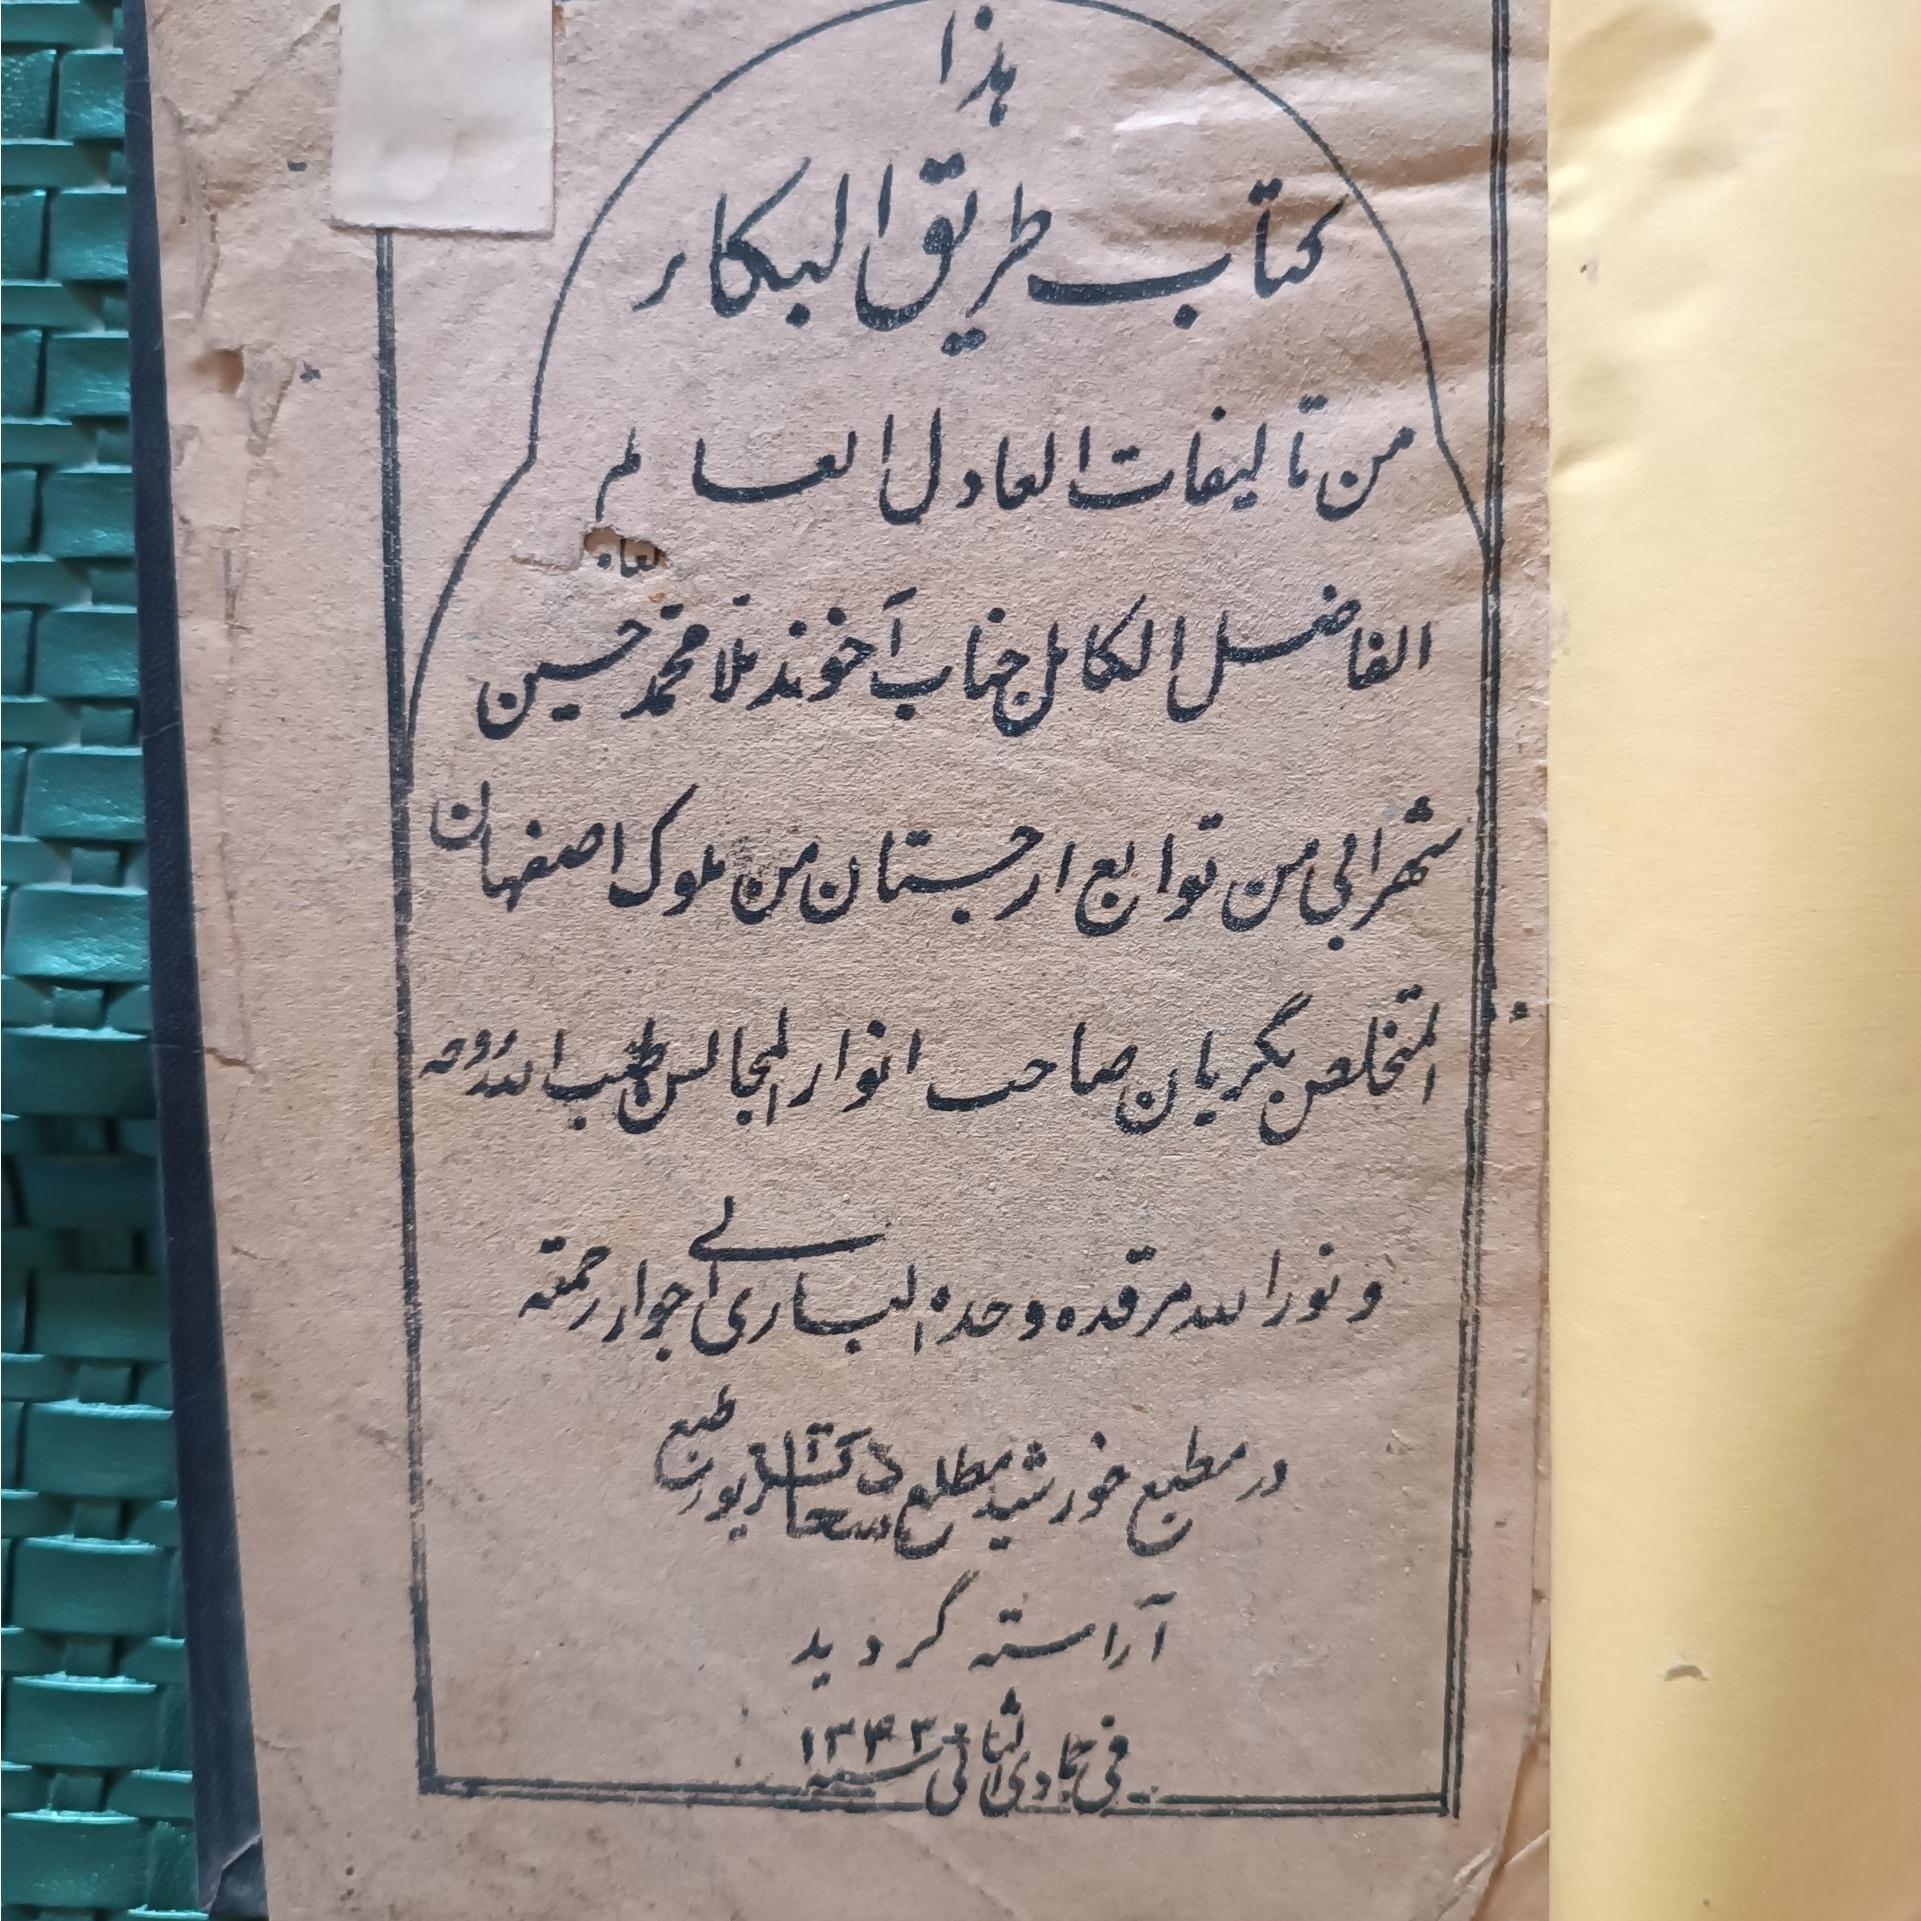 هذا
کتاب طریق البکاء
من تالیفات العادل العالم
الفاضل الکامل جناب آخوند ملا محمد حسین
شهرابی من توابع ارجستان من ملوک اصفهان
المتخلص بگریان صاحب انوار المجالس طیب الله روحه
و نور الله مرقده وحده الباری الی جوار رحمته
در مطبع خورشید مطلع طبع
آراسته گردید
فی جمادی الثانی سنه ۱۳۴۳